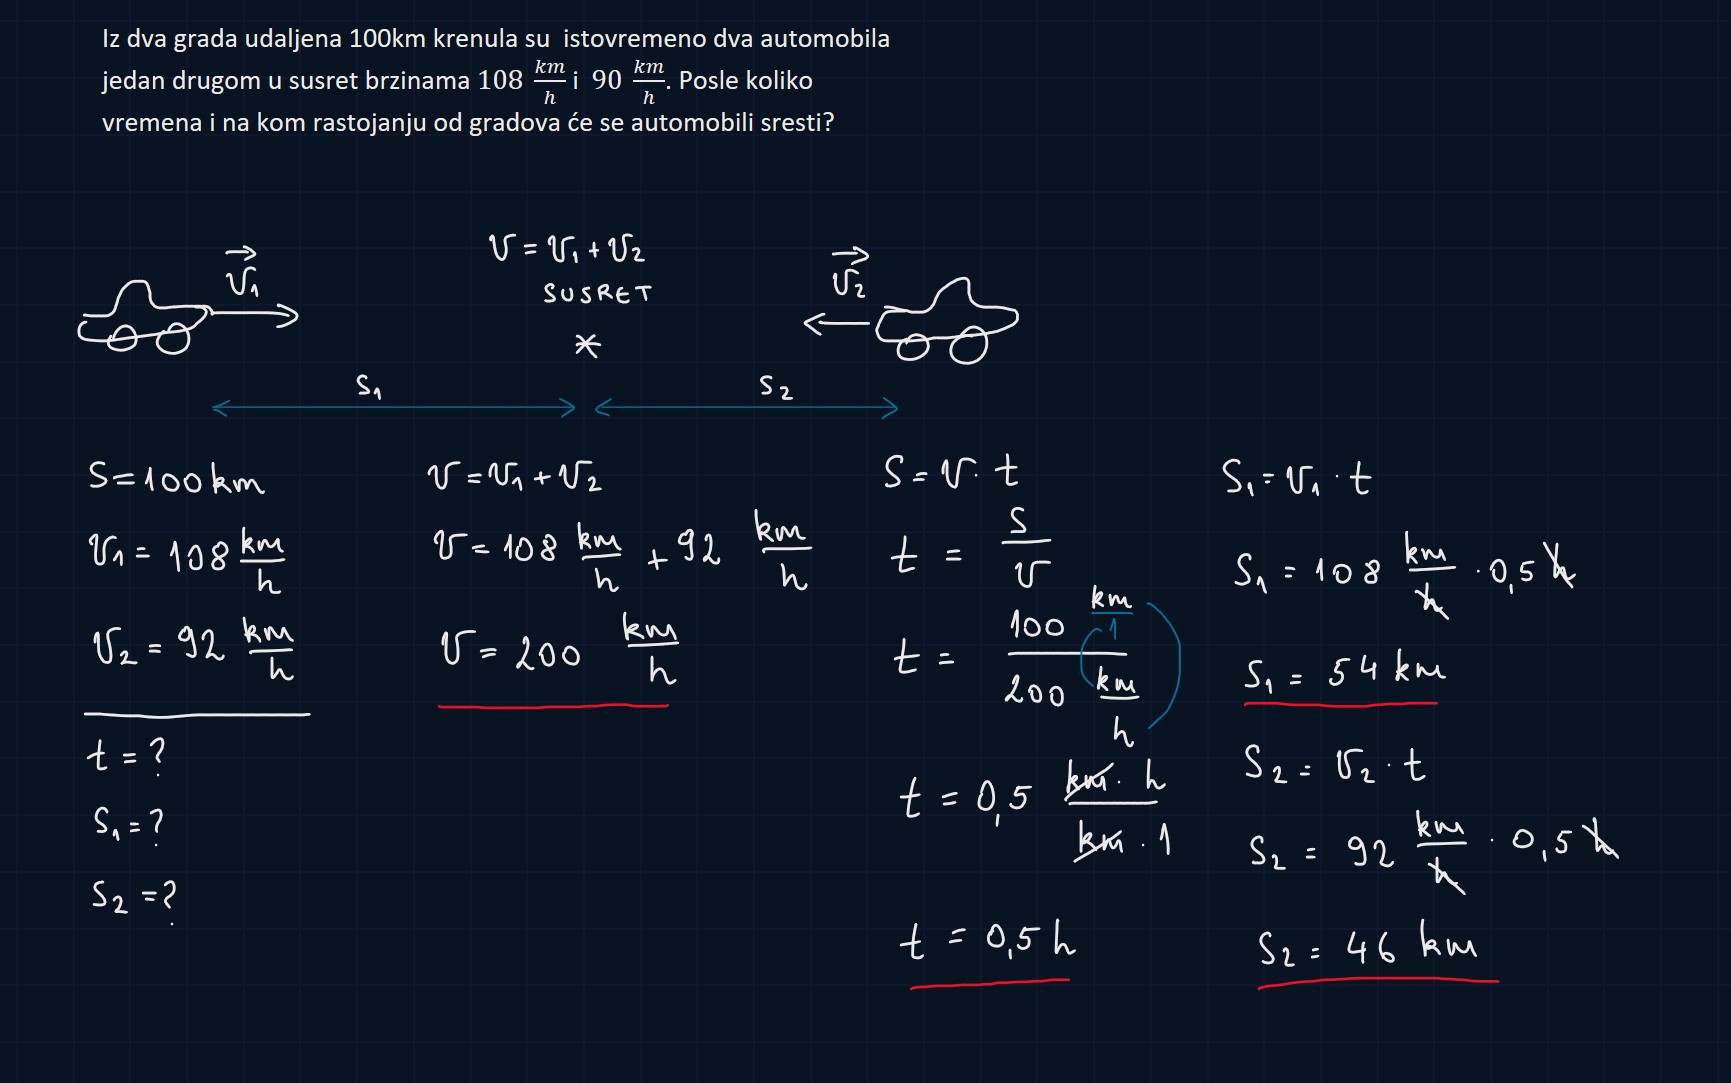 Iz dva grada udaljena 100km krenula su istovremeno dva automobila
jedan drugom u susret brzinama 108 km/h i 90 km/h. Posle koliko
vremena i na kom rastojanju od gradova će se automobili sresti?
v = v₁ + v₂
SUSRET
*
v⃗₁
v⃗₂
s₁
s₂
S = 100 km
v₁ = 108 km/h
v₂ = 92 km/h
t = ?
s₁ = ?
s₂ = ?
v = v₁ + v₂
v = 108 km/h + 92 km/h
v = 200 km/h
S = v · t
t = s/v
t = 100 km/1 / 200 km/h
t = 0,5 km · h / km · 1
t = 0,5 h
S₁ = v₁ · t
S₁ = 108 km/h · 0,5 h
S₁ = 54 km
S₂ = v₂ · t
S₂ = 92 km/h · 0,5 h
S₂ = 46 km